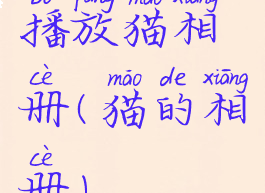 bō fàng māo xiàng
播放猫相
cè māo de xiāng
册(猫的相
cè
册)